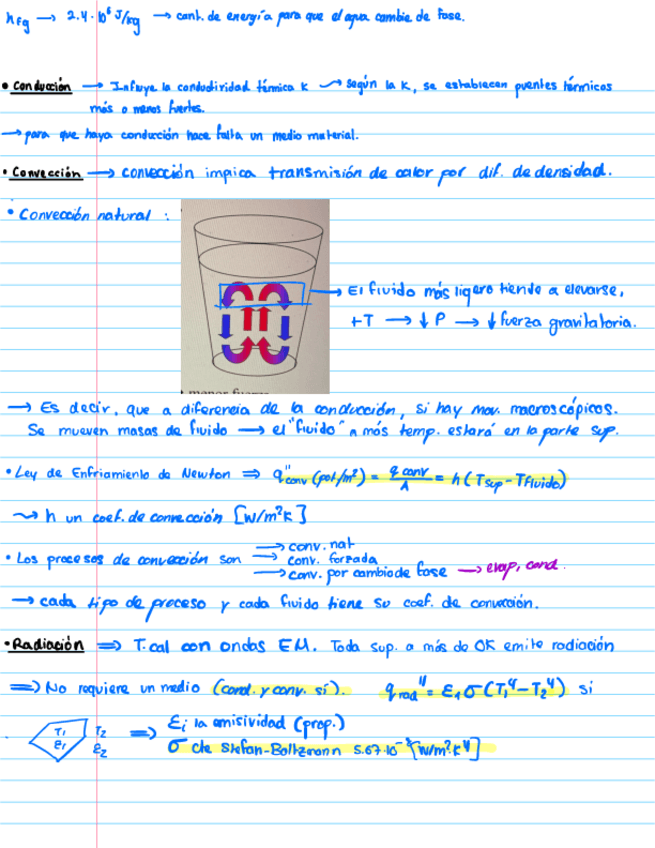 hfg → 2.4·10⁶ J/kg → cant. de energía para que el agua cambie de fase.
• Conducción → Influye la conductividad térmica K → según la K, se establecen puentes térmicos
más o menos fuertes.
→ para que haya conducción hace falta un medio material.
• Convección → convección impica transmisión de calor por dif. de densidad.
• Convección natural :
→ El fluido más ligero tiende a elevarse,
+T → ↓ρ → ↓ fuerza gravitatoria.
→ Es decir, que a diferencia de la conducción, si hay mov. macroscópicos.
Se mueven masas de fluido → el "fluido" a más temp. estará en la parte sup.
• Ley de Enfriamiento de Newton ⇒ q''conv (pot/m²) = q conv/A = h (Tsup - Tfluido)
⤳ h un coef. de convección [W/m²K]
• Los procesos de convección son → conv. nat
→ conv. forzada
→ conv. por cambio de fase → evap, cond.
→ cada tipo de proceso y cada fluido tiene su coef. de convección.
• Radiación ⇒ T. cal con ondas EM. Toda sup. a más de 0K emite radiación
⇒ No requiere un medio (cond. y conv. sí). q rad'' = ε₁ σ (T₁⁴ - T₂⁴) si
T₁ T₂ ⇒ εi la emisividad (prop.)
ε₁ ε₂ σ cte Stefan-Boltzmann 5.67·10⁻⁸ [W/m²·K⁴]